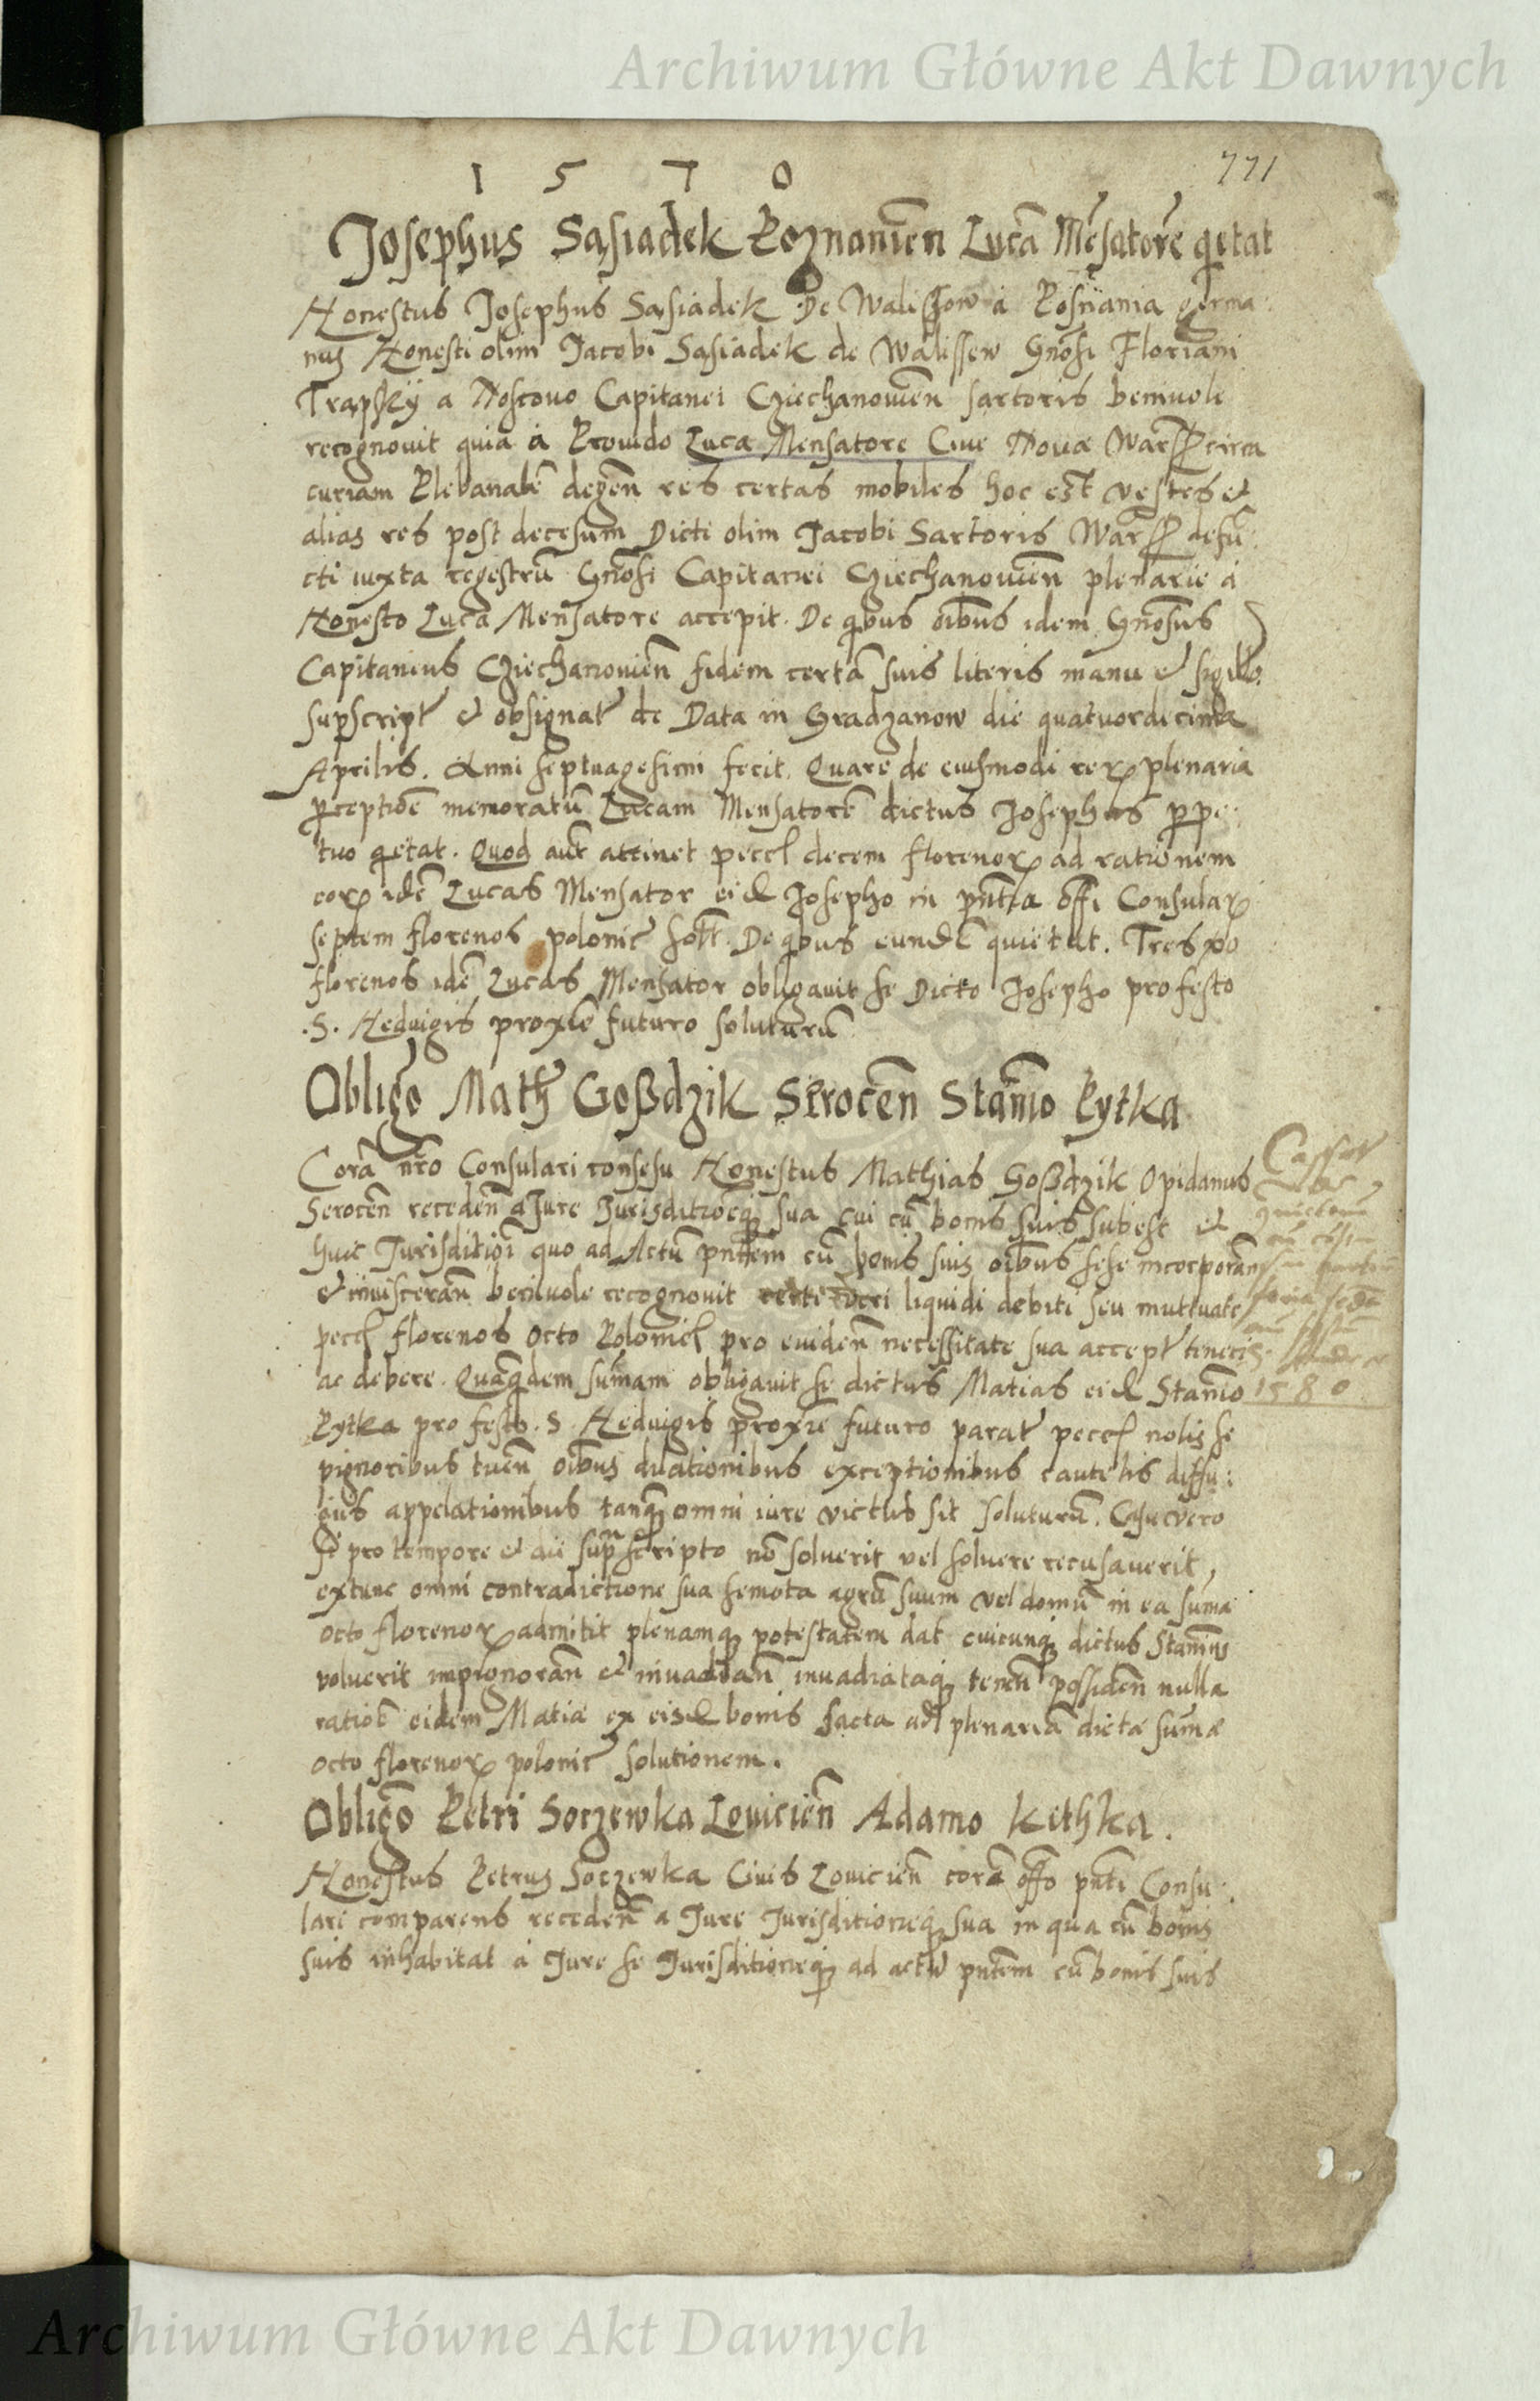 Archiwum Główne Akt Dawnych
1 5 7 0
771
Josephus Sąsiadek Poznanien̄ Lucā Mēsatorē qietat
Honestus Josephus Sąsiadek De Walissow a Posnania germa
nus Honesti olim Jacobi Sąsiadek de Walissew Gn̄osi Floriani
Trapskÿ a Noscovo Capitanei Cziechanowien̄ sartoris benivole
recognovit quia a Provido Luca Mensatore Cive Novæ Wars circa
curiam Plebanalē degen̄ res certas mobiles hoc est vestes et
alias res post decesum Dicti olim Jacobi Sartoris Wars defū
cti iuxta regestrū Gn̄osi Capitanei Cziechanowien̄ plenarie a
Honesto Luca Mensatore accepit. De qbus oībus idem Gn̄osus
Capitaneus Cziechanowien̄ fidem certā suis literis manu et sigillo
supscript et obsignat de Data in Gradzanow die quatuordecima
Aprilis. Anni septuagesimi fecit. Quare de eiusmodi rerꝝ plenaria
pceptiōe memoratū Lucam Mensatorē dictus Josephus ppe
tuo qietat. Quod aut attinet pecc decem florenorꝝ ad rationem
eorꝝ idē Lucas Mensator eid Josepho in pn̄tia offi Consularꝝ
septem florenos polonic solt. De qbus eundē quietat. Tres vo
florenos idē Lucas Mensator obligavit se Dicto Josepho pro festo
.S. Hedvigis proxīe futuro soluturū
Obligō Math Goßdzik Serocen̄ Stan̄io Pytka
Corā nr̄o Consulari consesu Honestus Mathias Goßdzik Opidanus
Serocen̄ receden̄ a Jure Jurisditioēq sua cui cū bonis suis subest et
huic Jurisditioī quo ad Actū pn̄tem cū bonis suis oībus sese incorporan̄
et invisceran̄ benivole recognovit veri liquidi debiti seu mutuate
pecc florenos octo Polonic pro eviden̄ necessitate sua accept teneri
ac debere. Quāqdem sum̄am obligavit se dictus Matias eid Stan̄io
Pytka pro festo .S. Hedvigis proxīe futuro parat pecc nolis se
pignoribus tuen̄ oībus dilationibus exceptionibus cautelis diffu
gus appelationibus tanq omni iure victus sit soluturū. Casu vero
si pro tempore et die suprascripto nō solverit vel solvere recusaverit,
extunc omni contradictione sua semota agrū suum vel domū in ea suma
octo florenorꝝ admitit plenamq potestatem dat cuicunq dictus Stan̄ius
voluerit impignoran̄ et invadian̄ invadiataq tenen̄ possiden̄ nulla
ratioē eidem Matiæ ex eisd bonis facta ad plenariā dictæ sum̄æ
octo florenorꝝ polonic solutionem.
Cassat
1580
Obligō Petri Soczewka Lovicien̄ Adamo Kethka.
Honestus Petrus Soczewka Civis Lovicien̄ corā offo pn̄ti Consu
lari comparens receden̄ a Jure Jurisditioneq sua in qua cū bonis
suis inhabitat a Jure se Jurisditioneq ad actū pn̄tem cū bonis suis
Archiwum Główne Akt Dawnych